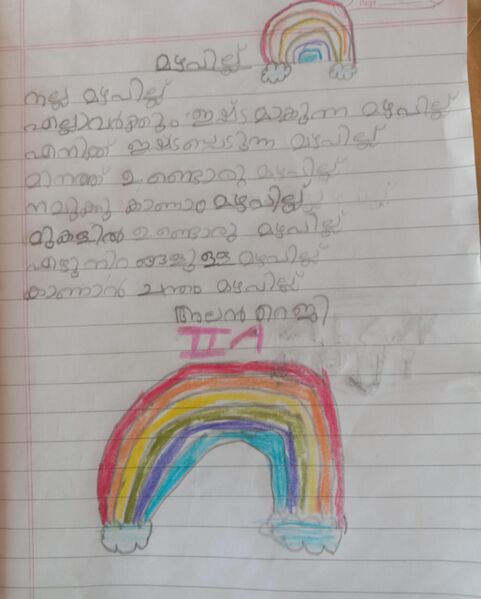 മഴപില്ല്
നല്ല മഴപില്ല്
എല്ലാവർക്കും ഇഷ്ടമാകുന്ന മഴപില്ല്
എനിക്ക് ഇഷ്ടപ്പെടുന്ന മഴപില്ല്
മാനത്ത് ഉണ്ടൊരു മഴപില്ല്
നമുക്കു കാണാം മഴപില്ല്
മുകളിൽ ഉണ്ടൊരു മഴപില്ല്
ഏഴു നിറങ്ങളുള്ള മഴപില്ല്
കാണാൻ ചന്തം മഴപില്ല്
അലൻ റെജി
II A